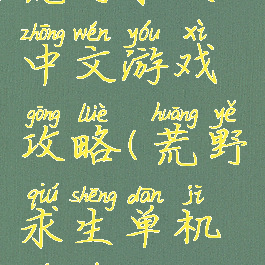 zhōng wén yóu xì
中文游戏
gōng lüè huāng yě
攻略(荒野
qiú shēng dān jī
求生单机